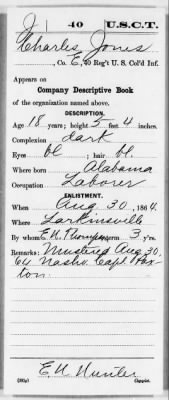 J | 40 | U.S.C.T.
Charles Jones
, Co. E, 40 Reg't U. S. Col'd Inf.
Appears on
Company Descriptive Book
of the organization named above.
DESCRIPTION.
Age 18 years; height 5 feet 4 inches.
Complexion dark
Eyes bl ; hair bl.
Where born Alabama
Occupation Laborer
ENLISTMENT.
When Aug 30, 1864.
Where Larkinsville
By whom E. K. term 3 y'rs.
Remarks: Mustered Aug 30,
64 Nash. Capt
ton.
Copyist.